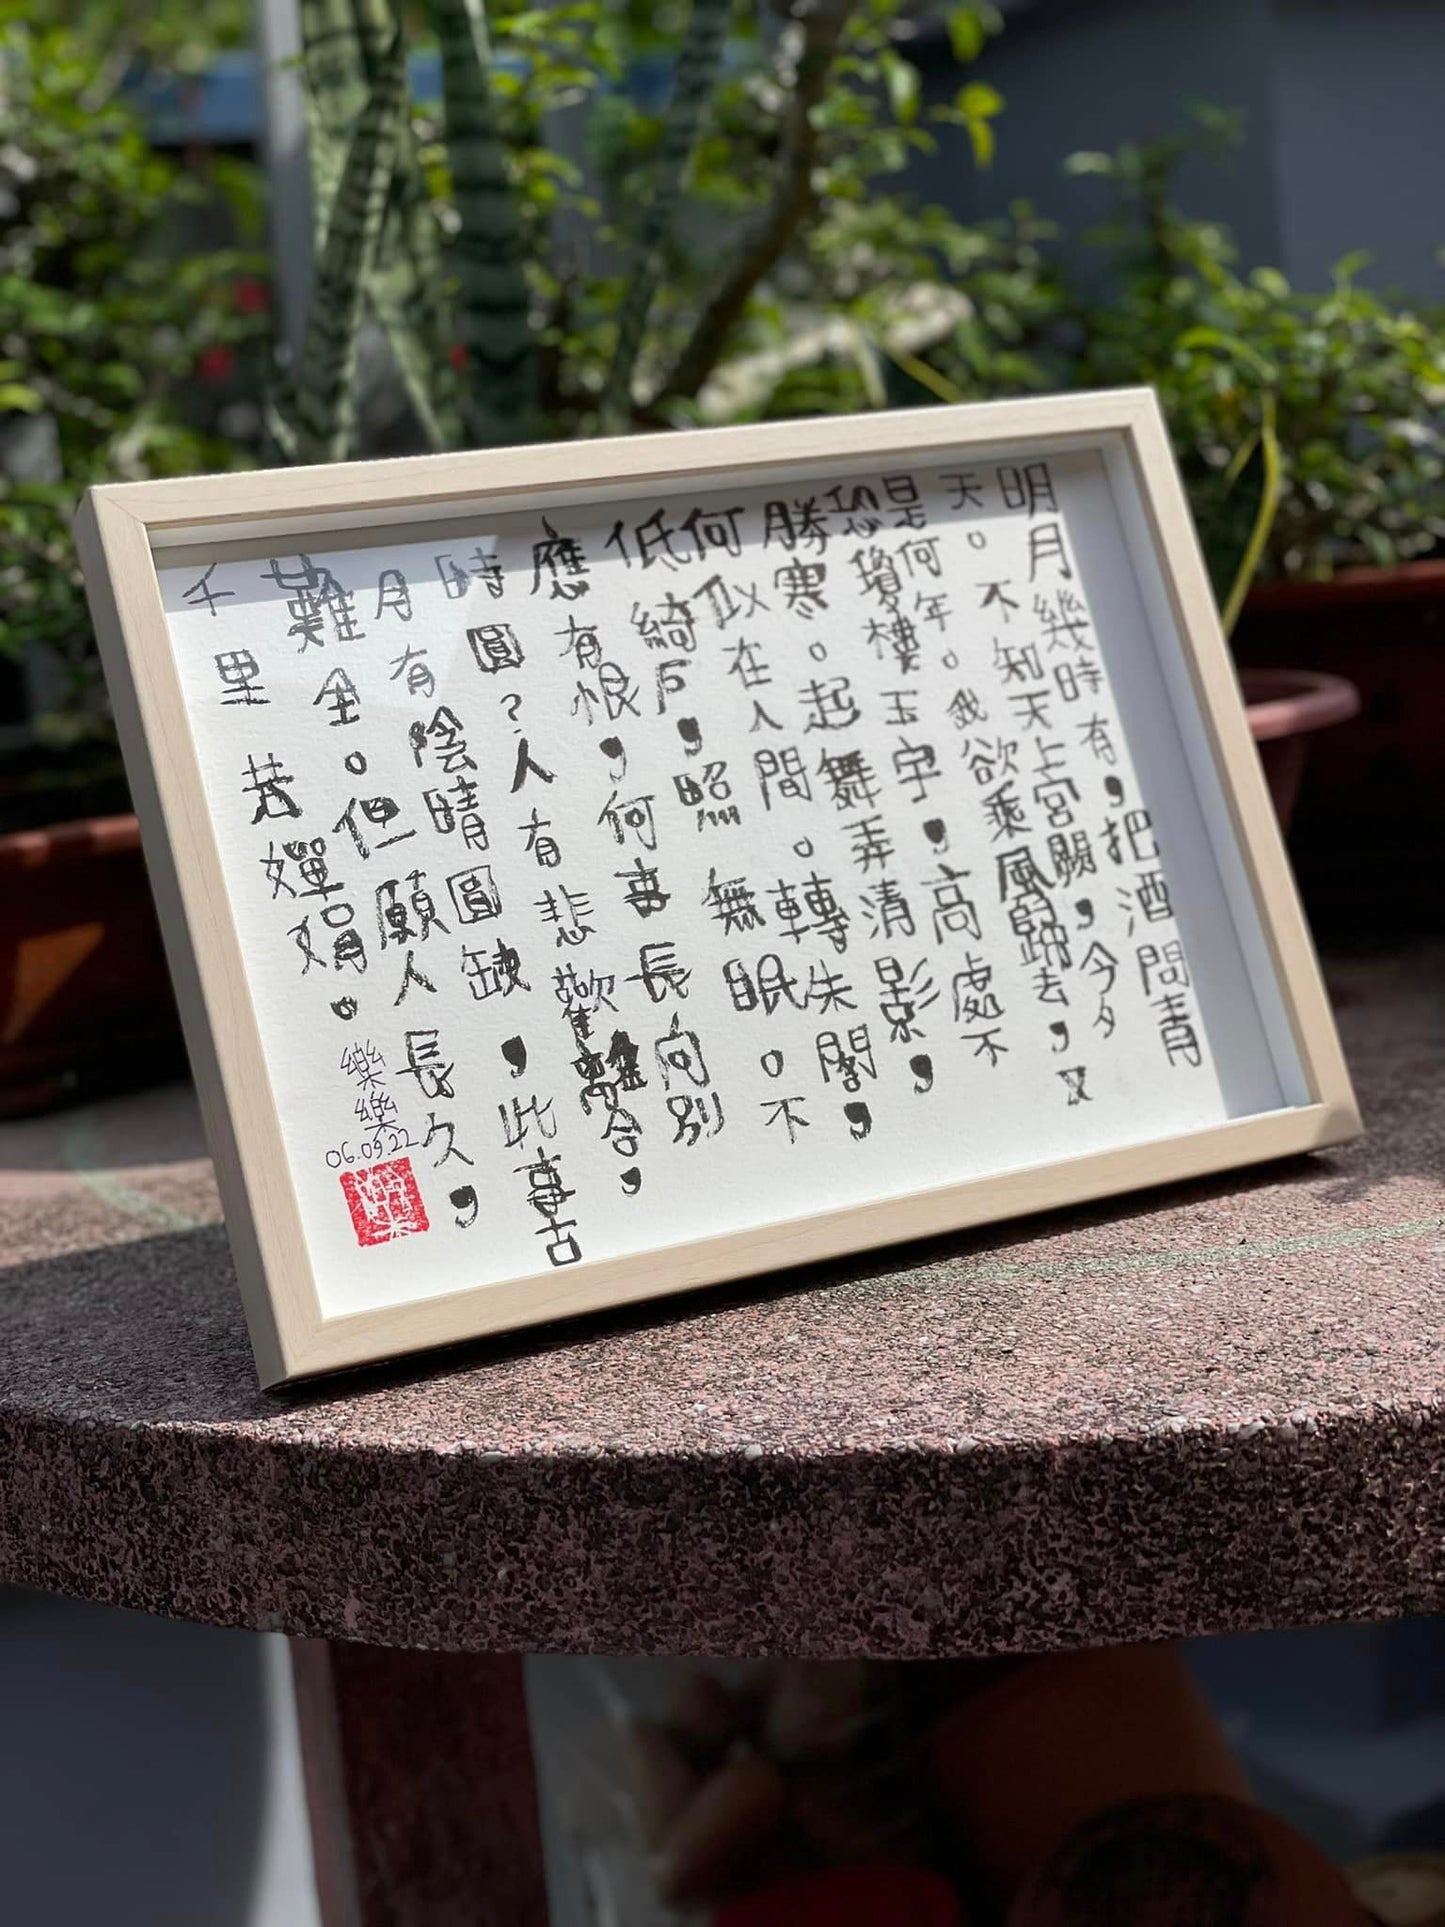 明月幾時有，把酒問青
天。不知天上宮闕，今夕
是何年。我欲乘風歸去，又
恐瓊樓玉宇，高處不
勝寒。起舞弄清影，
何似在人間。轉朱閣，
低綺戶，照無眠。不
應有恨，何事長向別
時圓？人有悲歡離合，
月有陰晴圓缺，此事古
難全。但願人長久，
千里 嬋娟。
樂樂
06.09.22